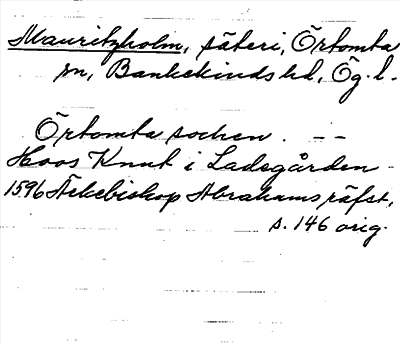 Mauritzholm, säteri, Örtomta
sn, Bankekinds hd, Ög. l.
Örtomta sochen. - -
Hoos Knut i Ladsgården -
1596 Ärkebiskop Abrahams räfst,
s. 146 orig.